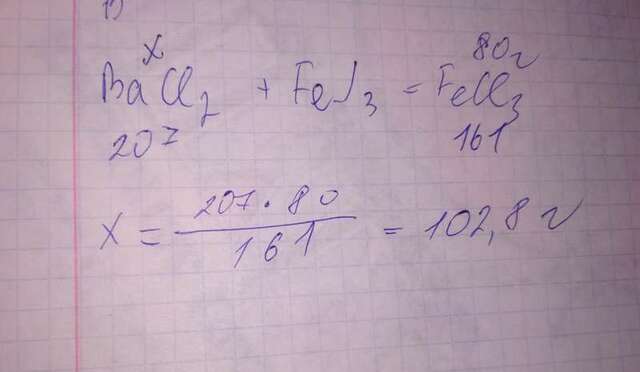 1)
x 80г
BaCl2 + FeJ3 = FeCl3
207 161
x = 207 · 80 / 161 = 102,8 г